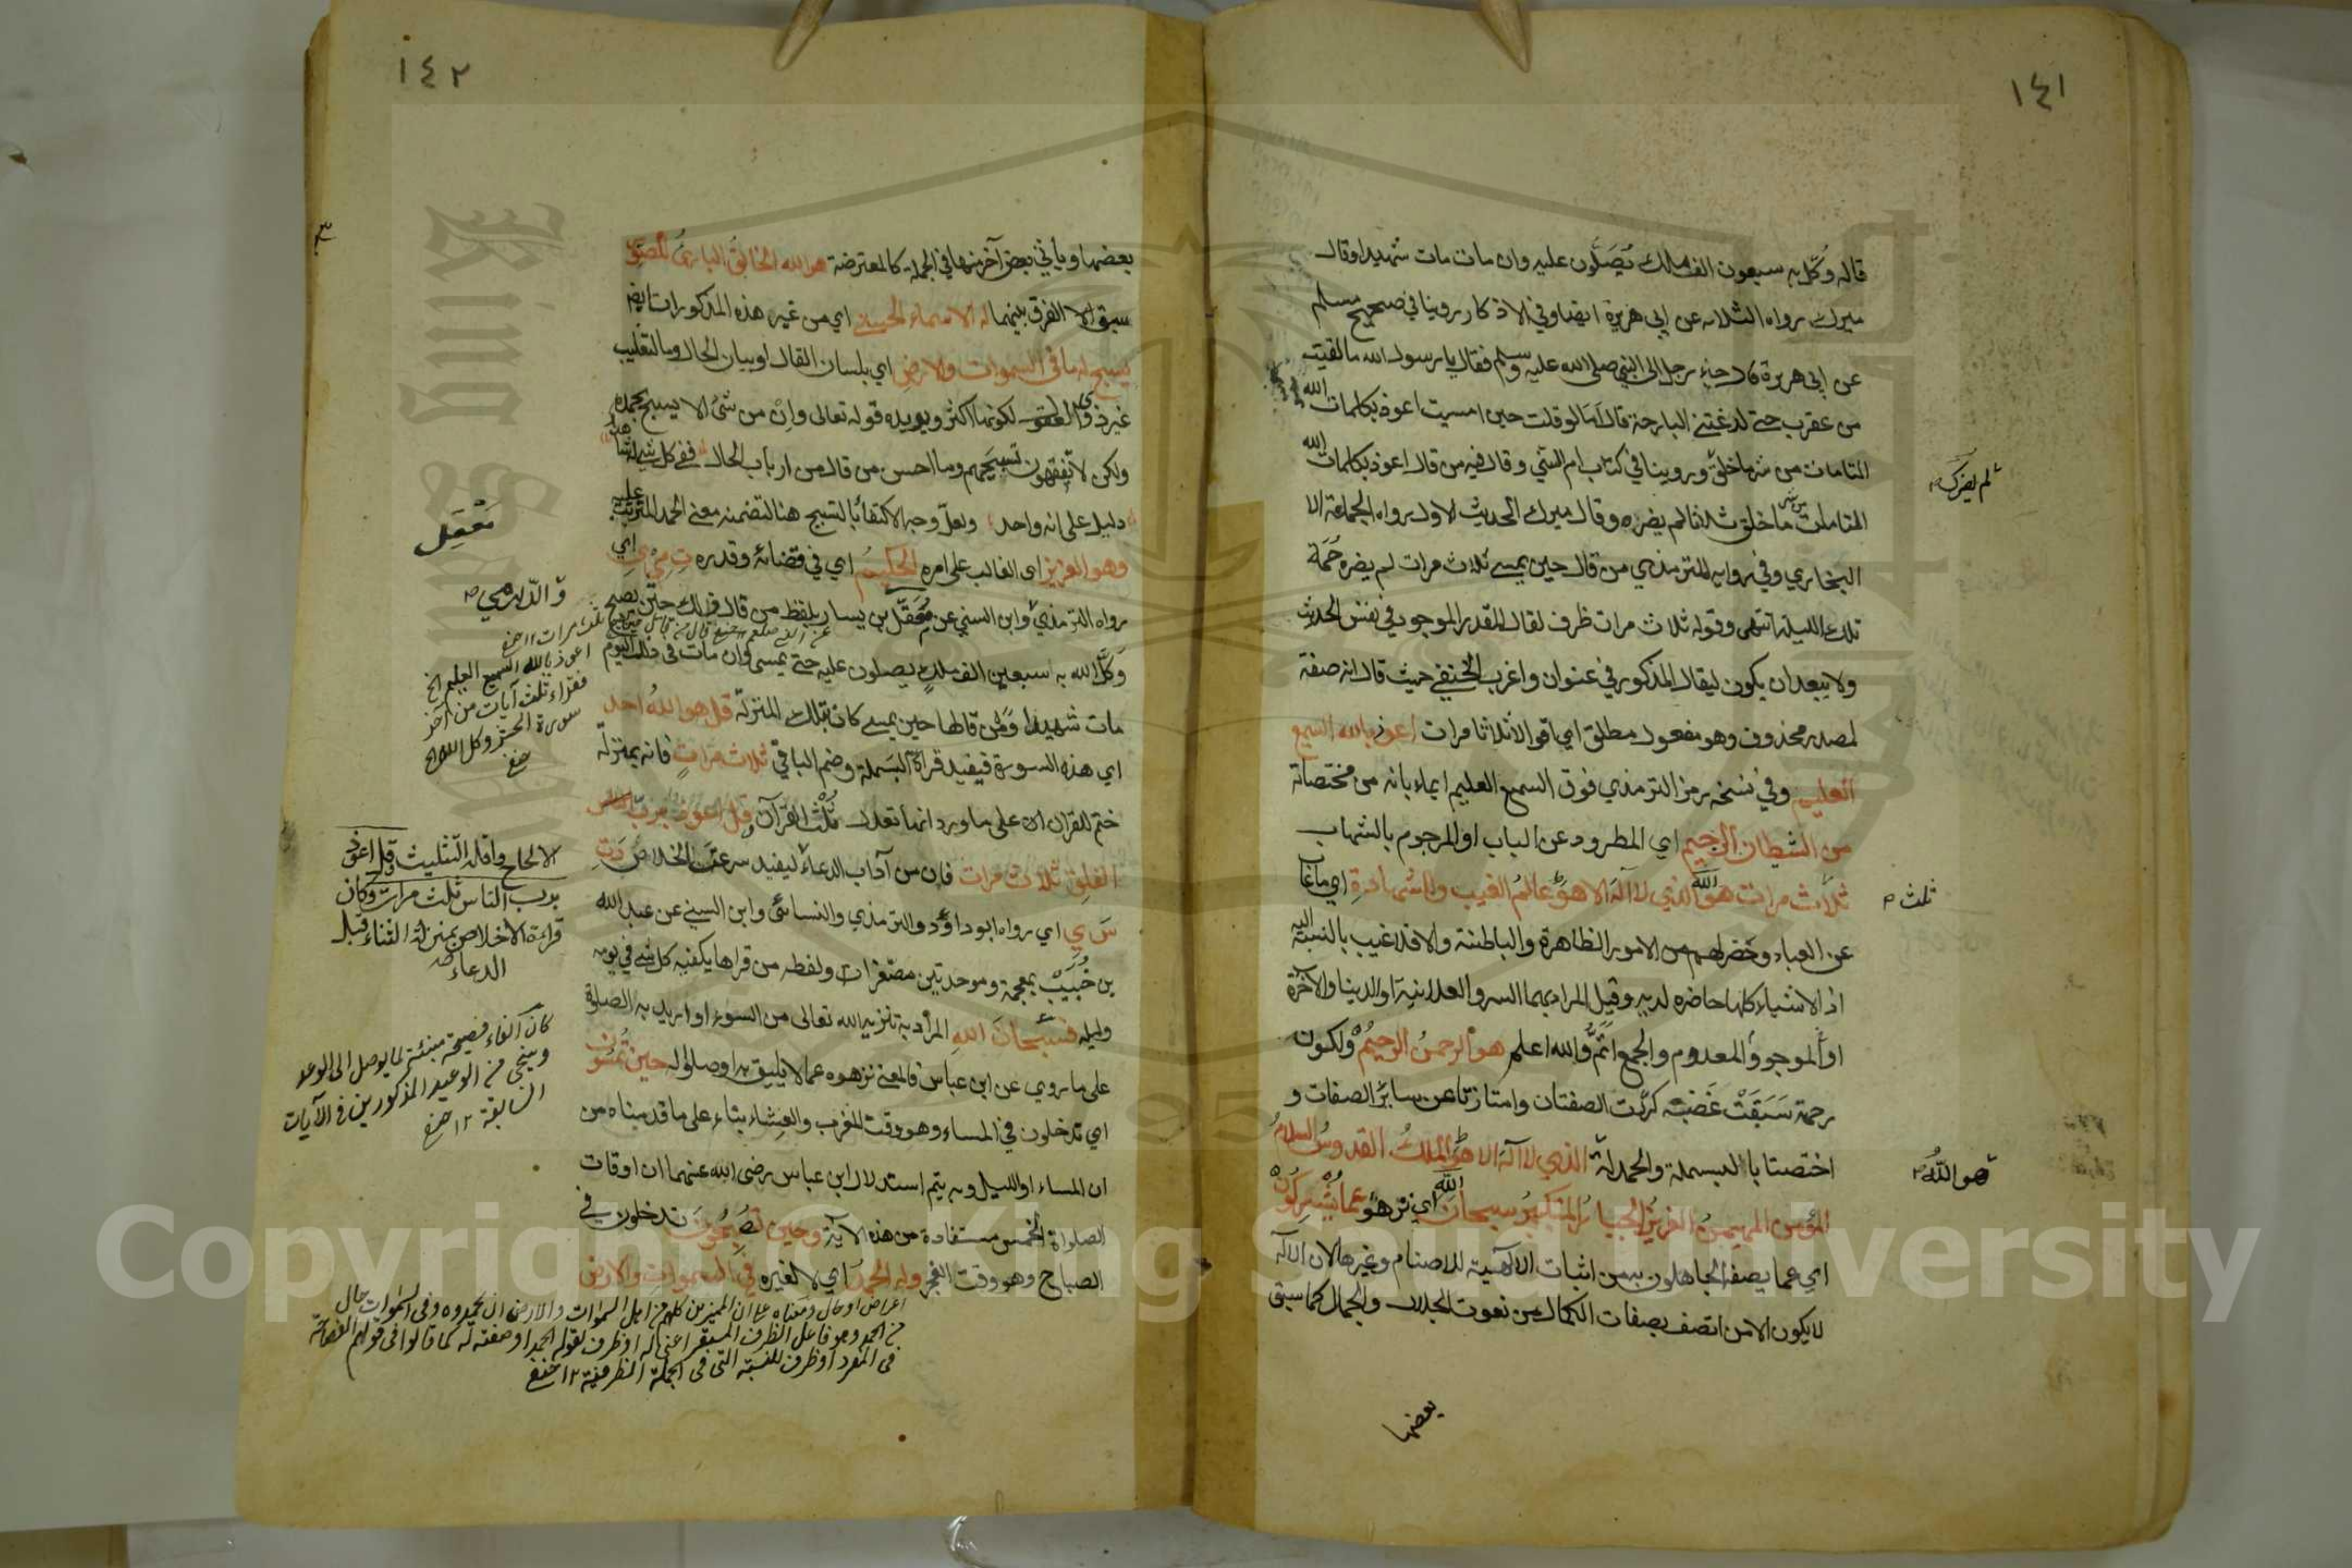 ١٤١
قاله وكّل به سبعون الف ملك يُصَلُّون عليه وان مات مات شهيدا وقال
ميرك رواه الثلاثه عن ابي هريرة ايضا وفي الاذكار روينا في صحيح مسلم
عن ابي هريرة قال جاء رجل الى النبي صلى الله عليه وسلم فقال يا رسول الله ما لقيت
من عقرب حتے لدغتنے البارحة قال اَمَا لو قلت حين امسيت اعوذ بكلمات الله
التامات من شر ما خلق وروينا في كتاب ابن السني وقال فيه من قال اعوذ بكلمات الله
التامات من شر ما خلق ثلاثا لم يضره وقال ميرك الحديث الاول رواه الجماعة الا
البخاري وفي رواية للترمذي من قال حين يمسے ثلاث مرات لم يضره حُمَة
تلك الليلة انتهى وقوله ثلاث مرات ظرف لقال المقدر الموجود في نفس الحديث
ولا يبعد ان يكون ليقال المذكور في عنوان واغرب الحنفي حيث قال انه صفة
لمصدر محذوف وهو مفعول مطلق اي اقوالا ثلاثا مرات اعوذ بالله السميع
العليم وفي نسخه رمز الترمذي فوق السميع العليم ايماء بانه من مختصاته
من الشيطان الرجيم اي المطرود عن الباب او المرجوم بالشهاب
ثلاث مرات هو الله الذي لا اله الا هو عالم الغيب والشهادة اي ما غاب
عن العباد وحضر لهم من الامور الظاهرة والباطنة والا فلا غيب بالنسبة اليه
اذ الاشياء كلها حاضره لديه وقيل المراد بهما السر والعلانية او الدنيا والآخرة
او الموجود والمعدوم والجمع اتمُّ والله اعلم هو الرحمنُ الرحيمُ ولكون
رحمة سَبَقَتْ غَضَبَه كرّرت الصفتان وامتازتا عن سائر الصفات و
اختصتا بالبسملة والحمدلة الذي لا اله الا هو الملك القدوس السلام
المؤمن المهيمن العزيز الجبار المتكبر سبحان الله اي نزهوه عما يُشْرِكُونْ
اي عما يصف الجاهلون به من اثبات الالهية للاصنام وغيرها لان الاله
لا يكون الا من اتصف بصفات الكمال من نعوت الجلال والجمال كما سبق
بعضها
لم يضرك
ثلث
هو اللهُ
١٤٢
بعضها وياتي بعض آخر منها في الجملة كالمعترضة هو الله الخالقُ البارئُ المصوّر
سبق الفرق بينهما له الاسماء الحسنے اي من غير هذه المذكورات ايضا
يسبح له ما في السموات والارض اي بلسان القال او بيان الحال وما لتغليب
غير ذوي العقول لكونها اكثر ويويده قوله تعالى واِنْ من شئ الا يسبح بحمده
ولكن لا تفقهون تسبيحهم وما احسن من قال من ارباب الحال ففي كل شئ له شاهد
دليل على انه واحد ولعل وجه الاكتفاء بالتسبيح هنا لتضمنه معنى الحمد المترتب عليه
وهو العزيز اى الغالب على امره الحكيمُ اي في قضائه وقدره تِ مي ي اي
رواه الترمذي وابن السني عن مُعَقَّل بن يسار بلفظ من قال ذلك حين يصبح
وَكَّل الله به سبعين الف ملكٍ يصلون عليه حتے يمسى وان مات فى ذلك اليوم
مات شهيدا ومن قالها حين يمسے كان بتلك المنزلة قل هو اللهُ احد
اي هذه السورة فيفيد قراءة البسملة وضم الباقي ثلاث مَرّاتٍ فانه بمنزلة
ختم للقرآن على ما ورد انها تعدل ثُلُثْ القرآن قل اعوذ برب
الفلق ثلاث مرات فان من آداب الدعاء ليفيد سرعة الخلاص دَتِ
سَ ي اي رواه ابو داؤد والترمذي والنسائى وابن السنے عن عبد الله
بن خُبَيْبْ بمعجمة وموحدتين مصغرات ولفظه من قراها يكفيه كل شئ في يومه
وليله فسبحانَ اللهِ المراد به تنزيه الله تعالى من السوء او اريد به الصلوة
على ما روي عن ابن عباس فالمعنے نزهوه عما لا يليق به او صلوا له حين تُمْسُون
اي تدخلون في المساء وهو وقت المغرب والعِشاء بناء على ما قدمناه من
ان المساء او الليل وبه يتم استدلال ابن عباس رضى الله عنهما ان اوقات
الصلوات الخمس مستفادة من هذه الآية وحين تصبحُونَ تدخلون في
الصباح وهو وقت الفجر وله الحمدُ اي لا لغيره في السموات والارض
مَعْقِل
والدارمي
ثلث مرات ١٢
اعوذ بالله السميع العليم الخ
فقراء ثلث آيات من آخر
سورة الحشر وكل الله الخ
الالحاح واقله التثليث وقل اعوذ
برب الناس ثلث مرات وكان
قراءة الاخلاص بمنزلة الثناء قبل
الدعاء
كان الفاء فصيحة مبنئة لما يوصل الى الوعد
وينجى من الوعيد المذكورين في الآيات
السابقة ١٢
اعراض او حال ومعناه على ان المميزين كلهم من اهل السموات والارض ان يحمدوه وفى السموات حال
من الحمد وهو فاعل الظرف المستقر اعنى له او ظرف لقوله الحمد او صفته له كما قالوا فى قولهم الفصاحة
فى المفرد او ظرف للنسبة التى فى الجملة الظرفية ١٢
Copyright © King Saud University
King Saud University
1957